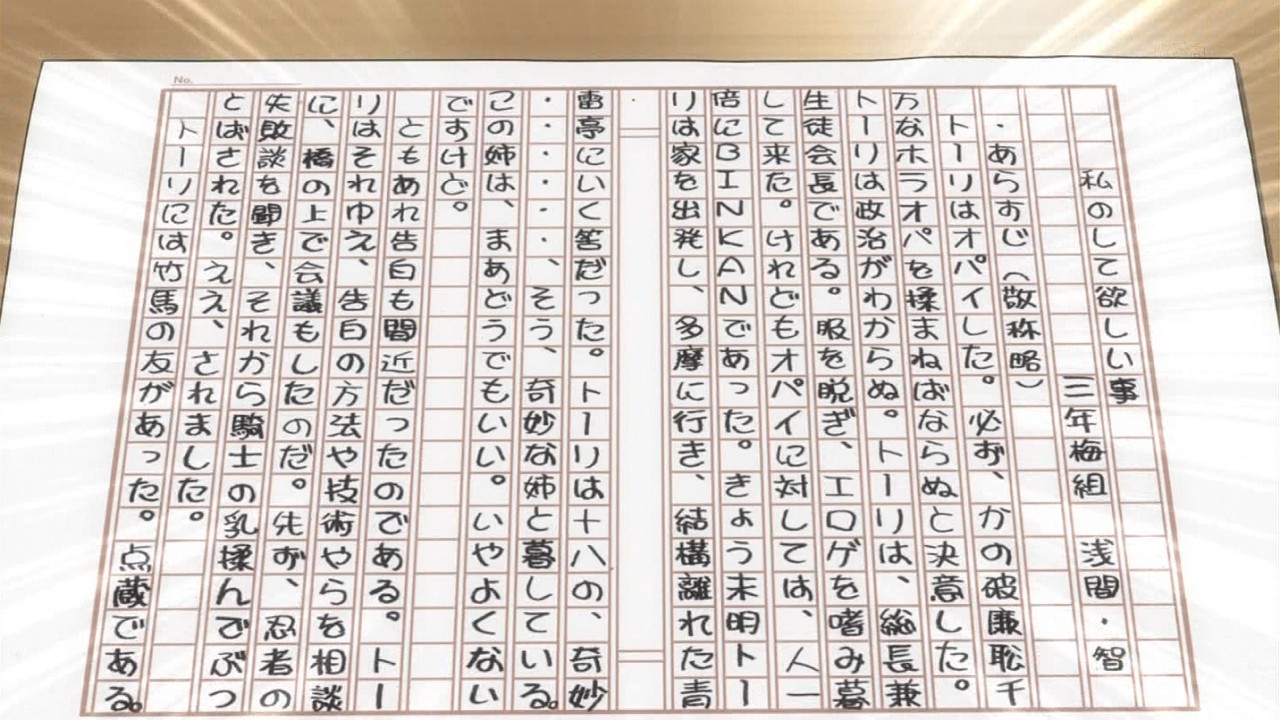 No.
私のして欲しい事
三年梅組 浅間・智
・あらすじ（敬称略）
トーリはオパイした。必ず、かの破廉恥千
万なホラオパを揉まねばならぬと決意した。
トーリは政治がわからぬ。トーリは、総長兼
生徒会長である。服を脱ぎ、エロゲを嗜み暮
して来た。けれどもオパイに対しては、人一
倍にBINKANであった。きょう未明トー
リは家を出発し、多摩に行き、結構離れた青
雷亭にいく筈だった。トーリは十八の、奇妙
・・・・・・、そう、奇妙な姉と暮している。
この姉は、まあどうでもいい。いやよくない
ですけど。
ともあれ告白も間近だったのである。トー
リはそれゆえ、告白の方法や技術やらを相談
に、橋の上で会議もしたのだ。先ず、忍者の
失敗談を聞き、それから騎士の乳揉んでぶっ
とばされた。ええ、されました。
トーリには竹馬の友があった。点蔵である。